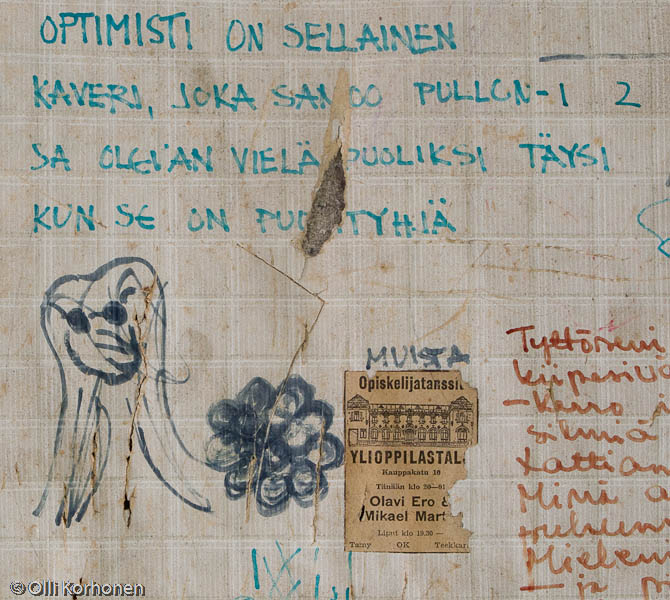 OPTIMISTI ON SELLAINEN
KAVERI, JOKA SANOO PULLON-1 2
SA OLEVAN VIELÄ PUOLIKSI TÄYSI
KUN SE ON TYHJÄ
MUISTA
Opiskelijatanssi
YLIOPPILASTAL
Kauppakatu 10
Tänään klo 20—01
Olavi Ero &
Mikael Mart
Liput klo 19.30 —
Tamy OK Teekkar
Tyttöseni
kiipesi
—
silmiä
Lattian
Minä
Mieleni
— ja p
© Olli Korhonen